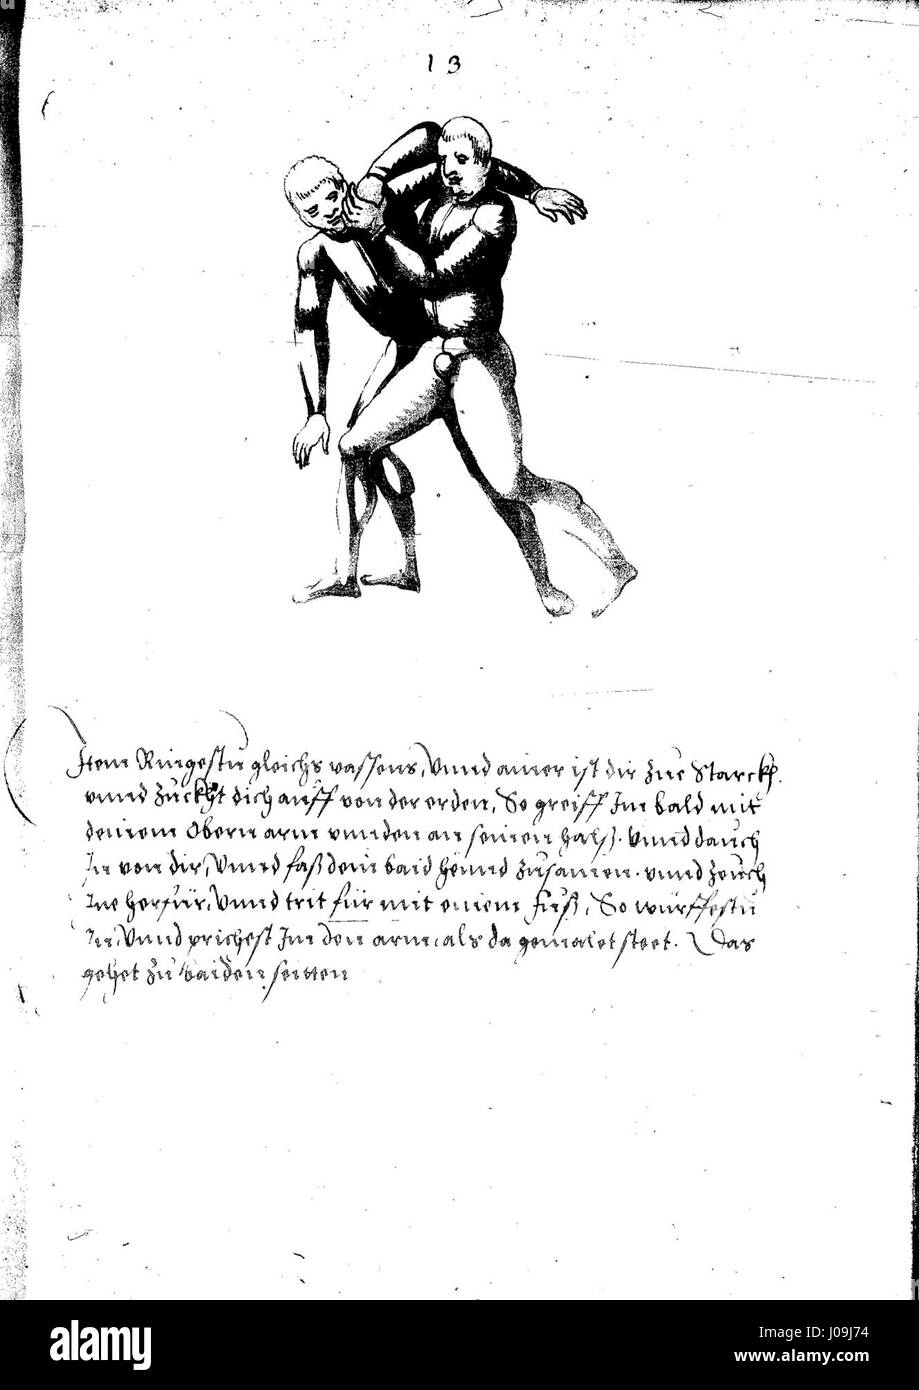 13
Item Ringestu gleichs vassens, Vnnd ainer ist dir zue Starckh.
vnnd zuckht dich auff von der erden, So greiff Im bald mit
deinem Obern arm vnnden an seinen halß. vnnd dauch
In von dir, Vnnd faß dein baid hennd zusamen. vnnd zeuch
Ine herfür, Vnnd trit für mit einem fuß, So würffestu
In, Vnnd prichest Im den arm, als da gemalet steet. Das
gehet zu baiden seitten
a
alamy
Image ID: J09J74
www.alamy.com